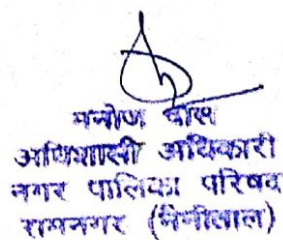 मनोज दास
अधिशासी अधिकारी
नगर पालिका परिषद
रामनगर (नैनीताल)